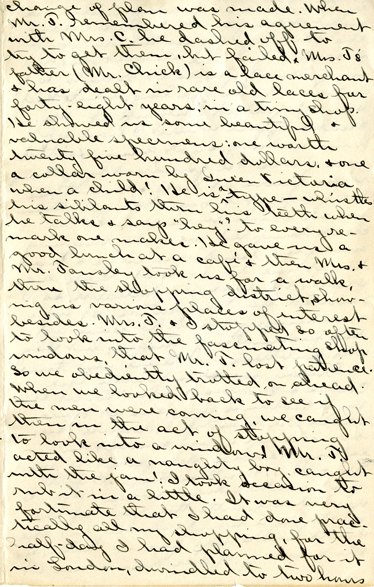 change of plan was made. When
Mr. T. remembered his agreement
with Mrs. C. he dashed off to
try to get them but failed. Mrs. T's
father (Mr. Chick) is a lace merchant
& has dealt in rare old laces for
forty-eight years in a tiny shop.
He showed us some beautiful &
valuable specimens: one worth
twenty five hundred dollars, & one
a collar worn by Queen Victoria
when a child! He is a type — whistles
his sibilants thru his teeth when
he talks & says "hey"? to every re-
mark one makes. He gave us a
good lunch at a café & then Mrs. &
Mr. Tansley took us for a walk,
thru the shopping district, show-
ing us various places of interest
besides. Mrs. T. & I stopped so often
to look into the fascinating shop
windows, that Mr. T. lost patience.
So we obediently trotted on ahead.
When we looked back to see if
the men were coming, we caught
them in the act of stopping
to look into a window! Mr. T.
acted like a naughty boy caught
with the jam! I took occasion to
rub it in a little. It was very
fortunate that I had done prac-
tically all my shopping, for the
half-day I had planned for it
in London, dwindled to two hours